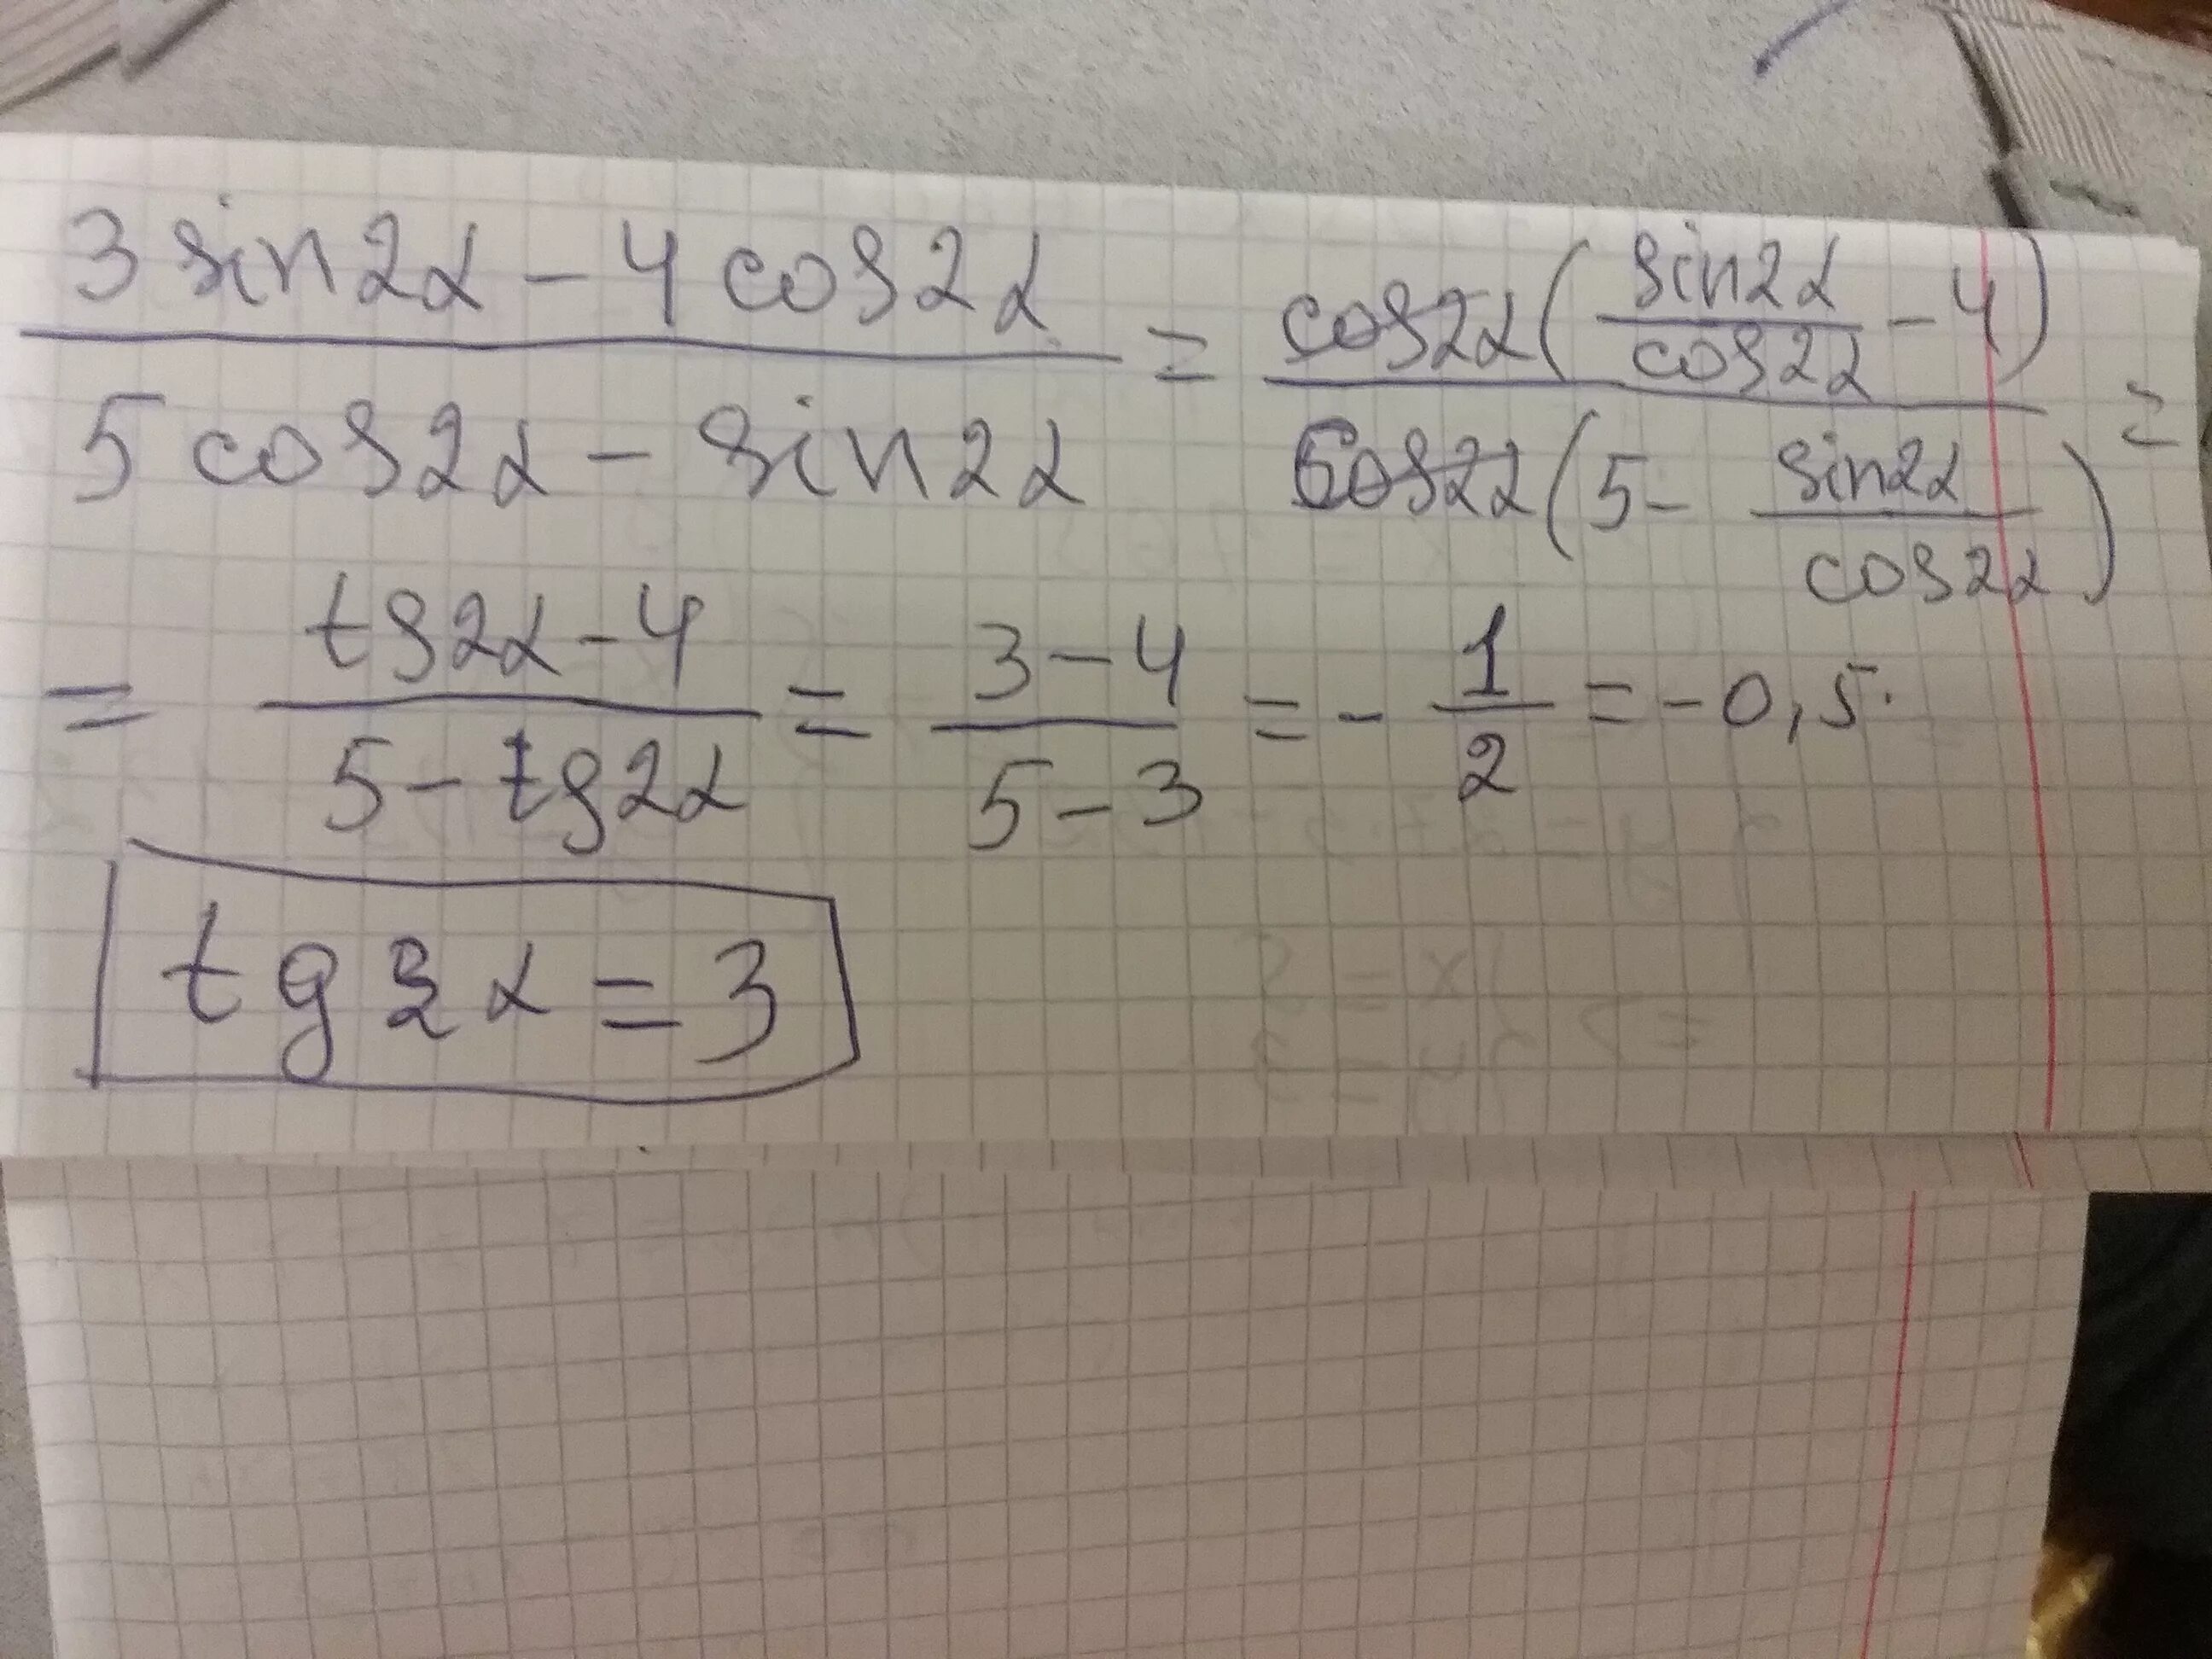 3 sin2α - 4 cos2α / 5 cos2α - sin2α = cos2α ( sin2α / cos2α - 4 ) / cos2α ( 5 - sin2α / cos2α ) =
= tg2α - 4 / 5 - tg2α = 3 - 4 / 5 - 3 = - 1 / 2 = - 0,5.
tg 2 α = 3